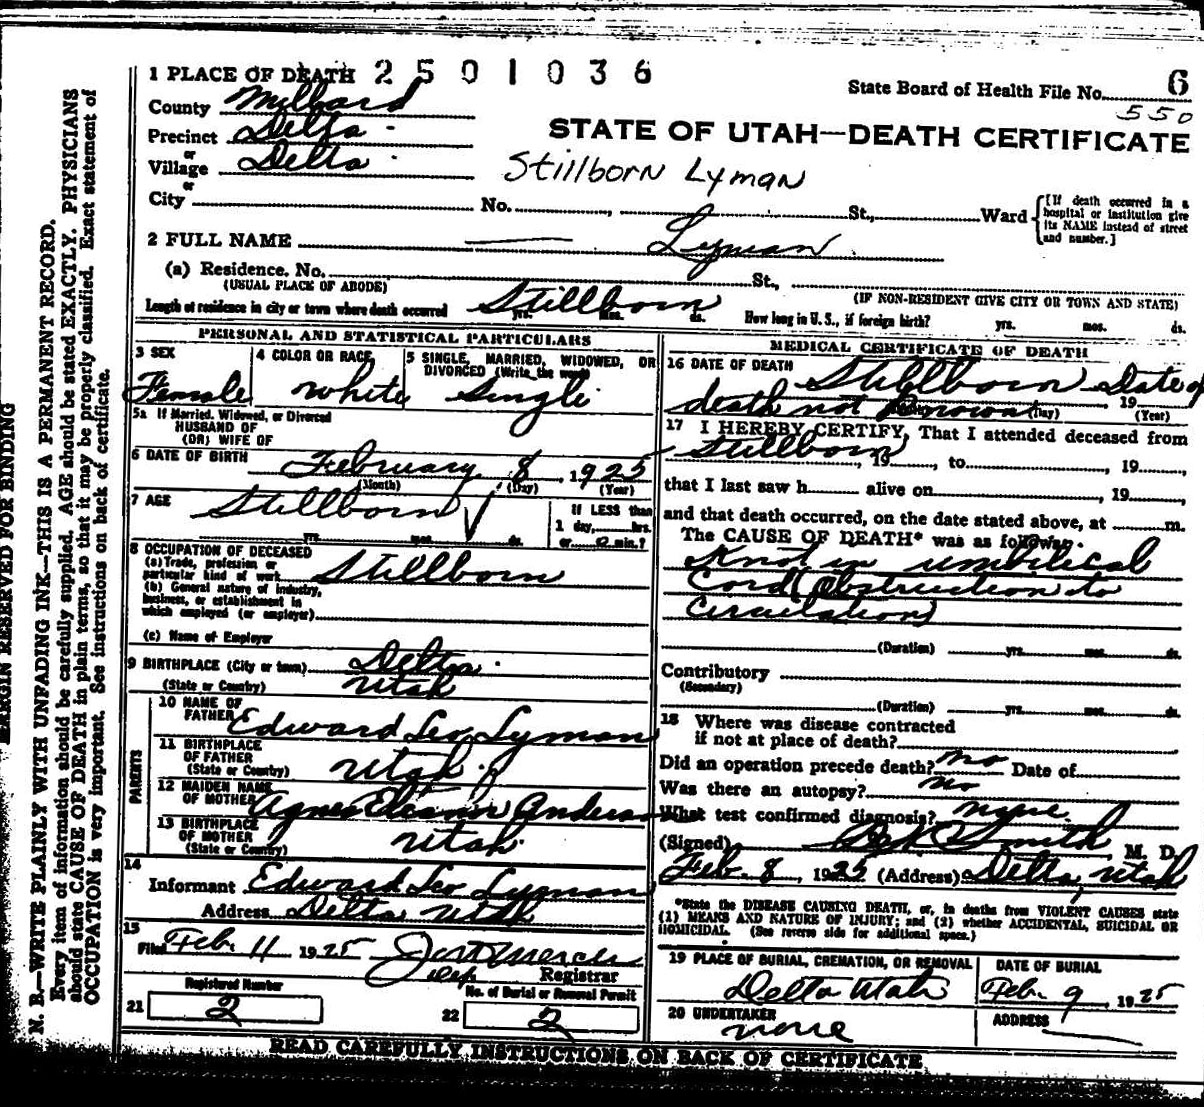 1 PLACE OF DEATH 2501036
State Board of Health File No. 6
550
County Millard
Precinct Delta
or
Village Delta
or
City No. , St., Ward
STATE OF UTAH—DEATH CERTIFICATE
Stillborn Lyman
[If death occurred in a hospital or institution give its NAME instead of street and number.]
2 FULL NAME Lyman
(a) Residence. No. St.,
(USUAL PLACE OF ABODE) (IF NON-RESIDENT GIVE CITY OR TOWN AND STATE)
Length of residence in city or town where death occurred Stillborn yrs. mos. ds. How long in U. S., if foreign birth? yrs. mos. ds.
PERSONAL AND STATISTICAL PARTICULARS
3 SEX 4 COLOR OR RACE 5 SINGLE, MARRIED, WIDOWED, OR
DIVORCED (Write the word)
Female white Single
5a If Married, Widowed, or Divorced
HUSBAND OF
(OR) WIFE OF
6 DATE OF BIRTH February 8, 1925
(Month) (Day) (Year)
7 AGE Stillborn
yrs. mos. ds.
If LESS than
1 day, hrs.
or min.?
8 OCCUPATION OF DECEASED
(a) Trade, profession or
particular kind of work Stillborn
(b) General nature of industry,
business, or establishment in
which employed (or employer)
(c) Name of Employer
9 BIRTHPLACE (City or town) Delta
(State or Country) Utah
PARENTS
10 NAME OF
FATHER Edward Leo Lyman
11 BIRTHPLACE
OF FATHER
(State or Country) Utah
12 MAIDEN NAME
OF MOTHER Agnes Eleanor
13 BIRTHPLACE
OF MOTHER
(State or Country) Utah
14
Informant Edward Leo Lyman
Address Delta Utah
15
Filed Feb. 11 1925
Registrar
Registered Number
21 2
No. of Burial or Removal Permit
22 2
MEDICAL CERTIFICATE OF DEATH
16 DATE OF DEATH Stillborn Date of
death not known 19
(Day) (Year)
17 I HEREBY CERTIFY, That I attended deceased from
Stillborn , 19 , to , 19 ,
that I last saw h alive on , 19 ,
and that death occurred, on the date stated above, at m.
The CAUSE OF DEATH* was as follows:
Knot in umbilical
Cord (Obstruction to
Circulation)
(Duration) yrs. mos. ds.
Contributory
(Secondary)
(Duration) yrs. mos. ds.
18 Where was disease contracted
if not at place of death?
Did an operation precede death? no Date of
Was there an autopsy? no
What test confirmed diagnosis? none.
(Signed) Smith , M. D.
Feb. 8, 1925 (Address) Delta, Utah
*State the DISEASE CAUSING DEATH, or, in deaths from VIOLENT CAUSES state
(1) MEANS AND NATURE OF INJURY; and (2) whether ACCIDENTAL, SUICIDAL OR
HOMICIDAL. (See reverse side for additional space.)
19 PLACE OF BURIAL, CREMATION, OR REMOVAL DATE OF BURIAL
Delta Utah Feb. 9, 1925
20 UNDERTAKER ADDRESS
none
READ CAREFULLY INSTRUCTIONS ON BACK OF CERTIFICATE
MARGIN RESERVED FOR BINDING
N. B.—WRITE PLAINLY WITH UNFADING INK—THIS IS A PERMANENT RECORD.
Every item of information should be carefully supplied. AGE should be stated EXACTLY. PHYSICIANS
should state CAUSE OF DEATH in plain terms, so that it may be properly classified. Exact statement of
OCCUPATION is very important. See instructions on back of certificate.